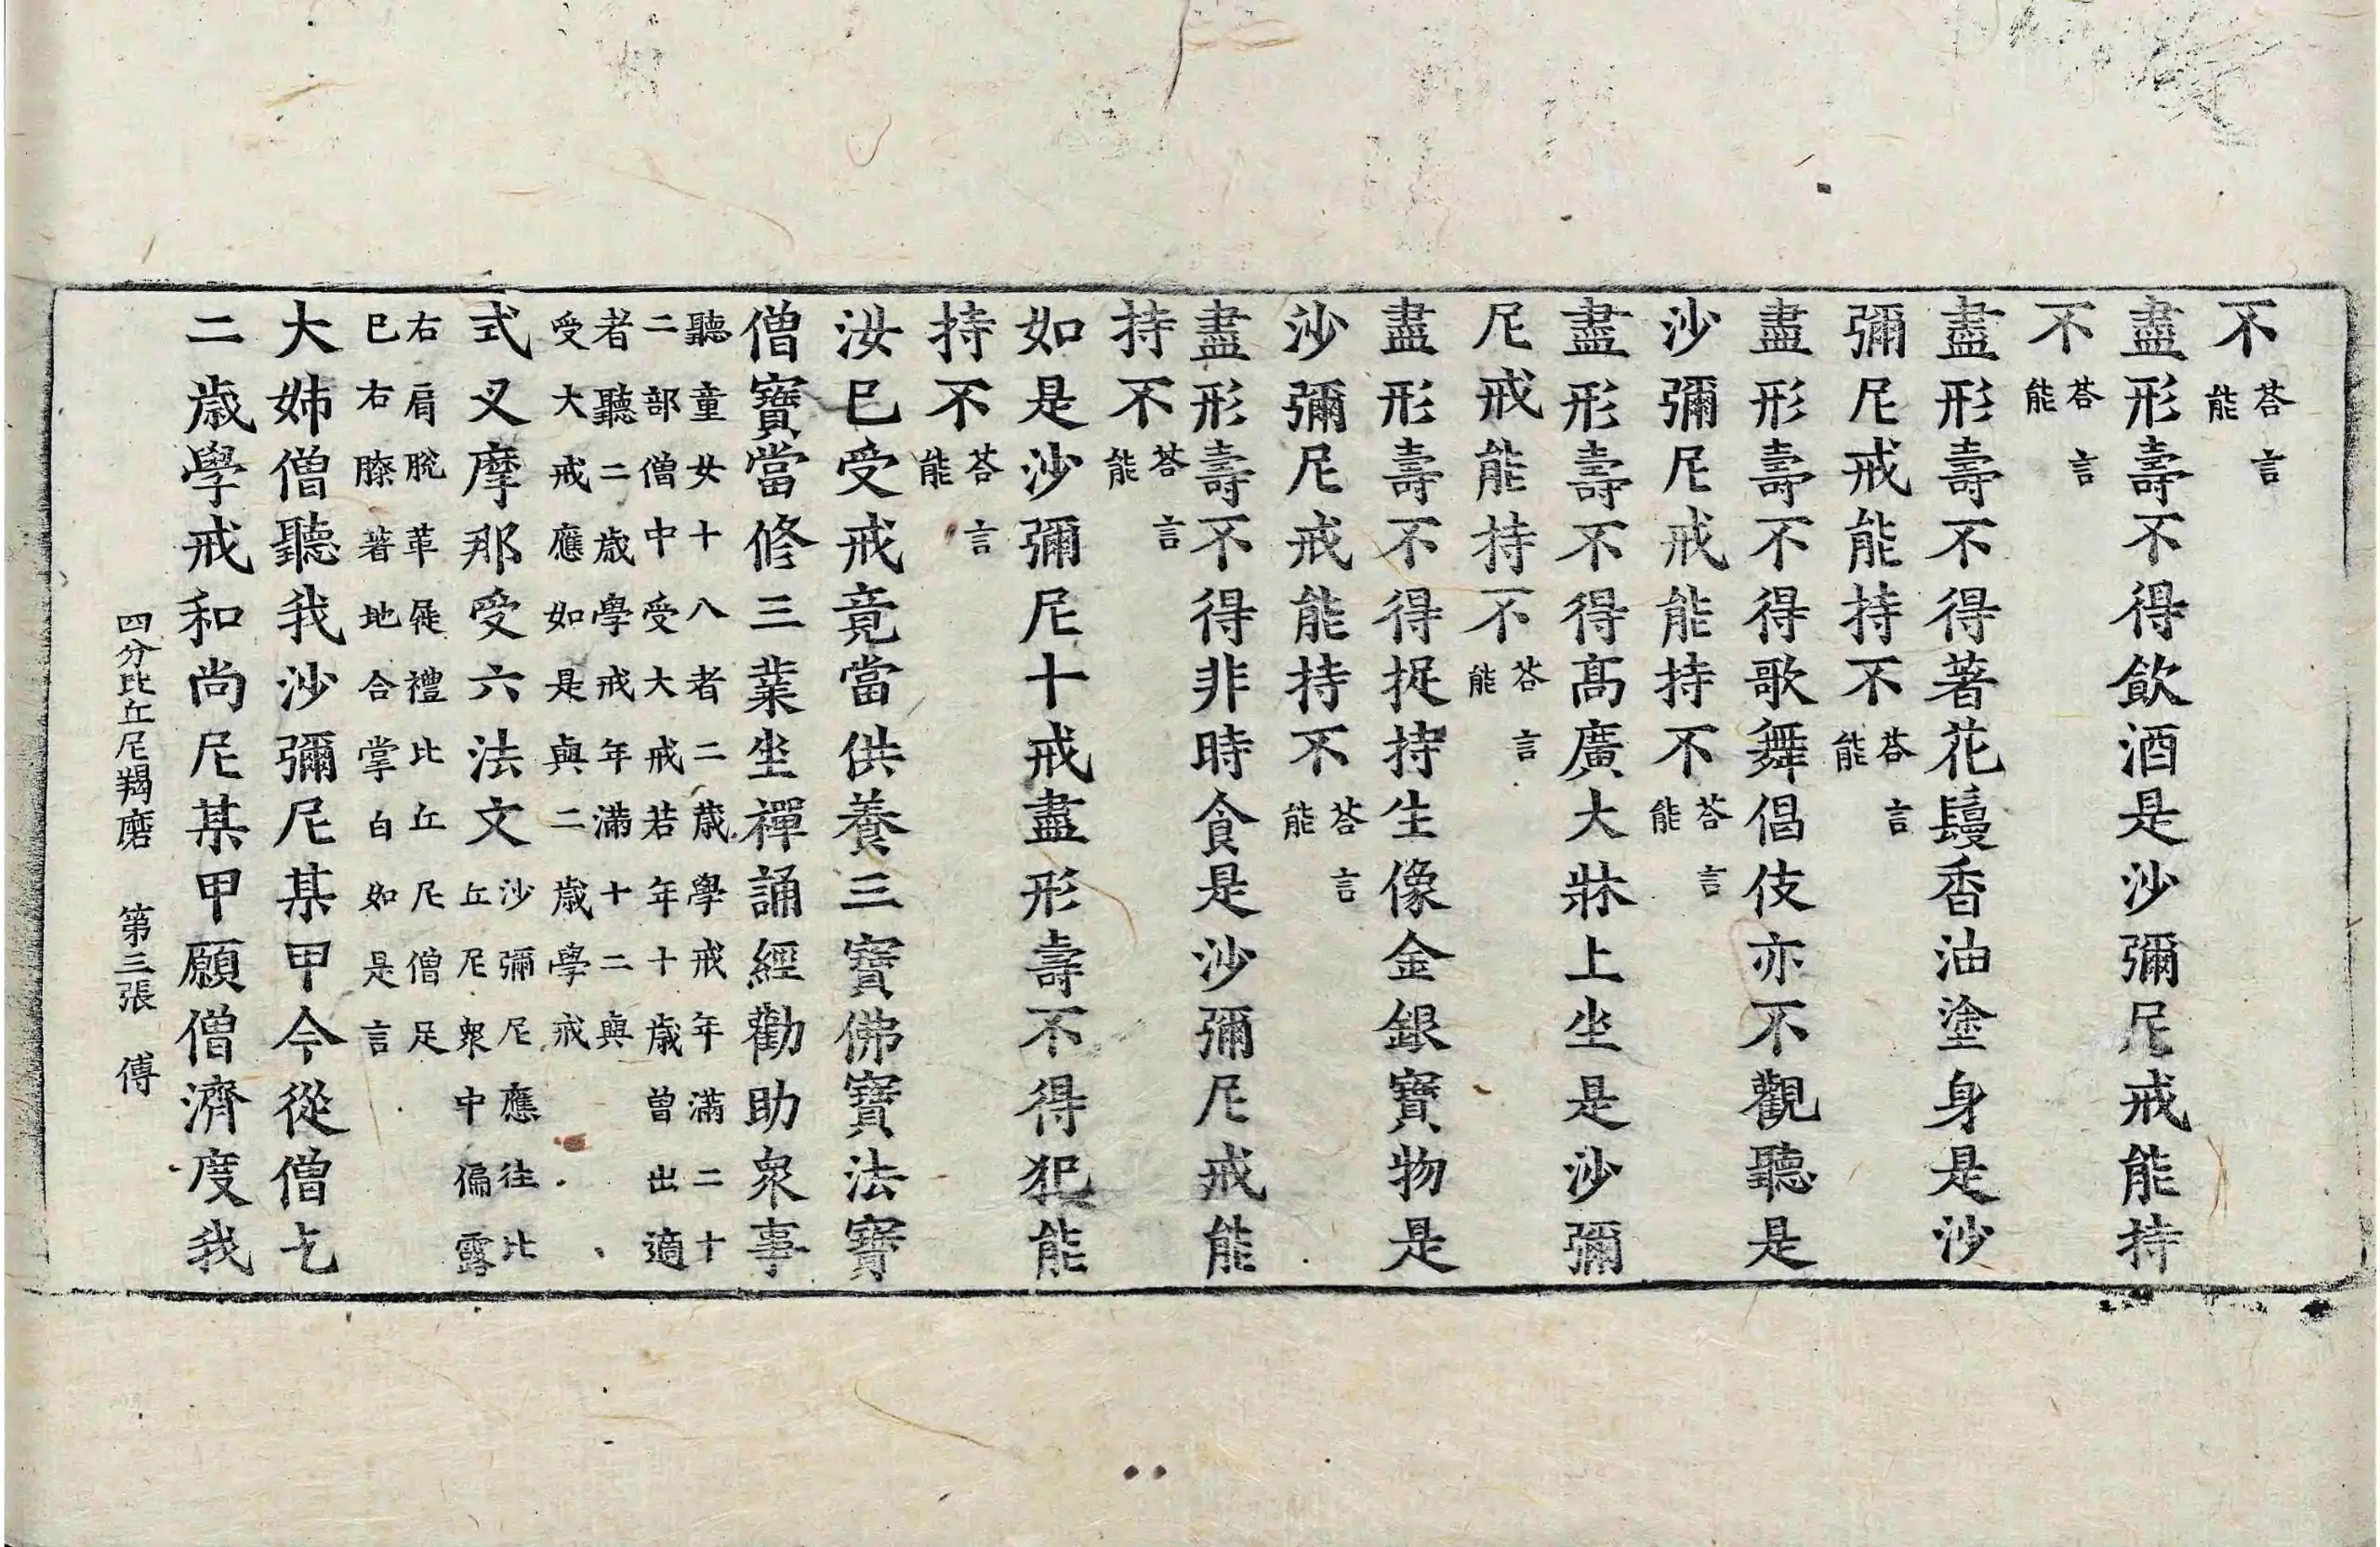 不荅言能
盡形壽不得飲酒是沙彌尼戒能持
不荅言能
盡形壽不得著花鬘香油塗身是沙
彌尼戒能持不荅言能
盡形壽不得歌舞倡伎亦不觀聽是
沙彌尼戒能持不荅言能
盡形壽不得高廣大牀上坐是沙彌
尼戒能持不荅言能
盡形壽不得捉持生像金銀寶物是
沙彌尼戒能持不荅言能
盡形壽不得非時食是沙彌尼戒能
持不荅言能
如是沙彌尼十戒盡形壽不得犯能
持不荅言能
汝已受戒竟當供養三寶佛寶法寶
僧寶當修三業坐禪誦經勸助衆事
聽童女十八者二歲學戒年滿二十
二部僧中受大戒若年十歲曾出適
者聽二歲學戒年滿十二與
受大戒應如是與二歲學戒
式叉摩那受六法文沙彌尼應往比
丘尼衆中偏露
右肩脫革屣禮比丘尼僧足
已右膝著地合掌白如是言
大姊僧聽我沙彌尼某甲今從僧乞
二歲學戒和尚尼某甲願僧濟度我
四分比丘尼羯磨 第三張 傅